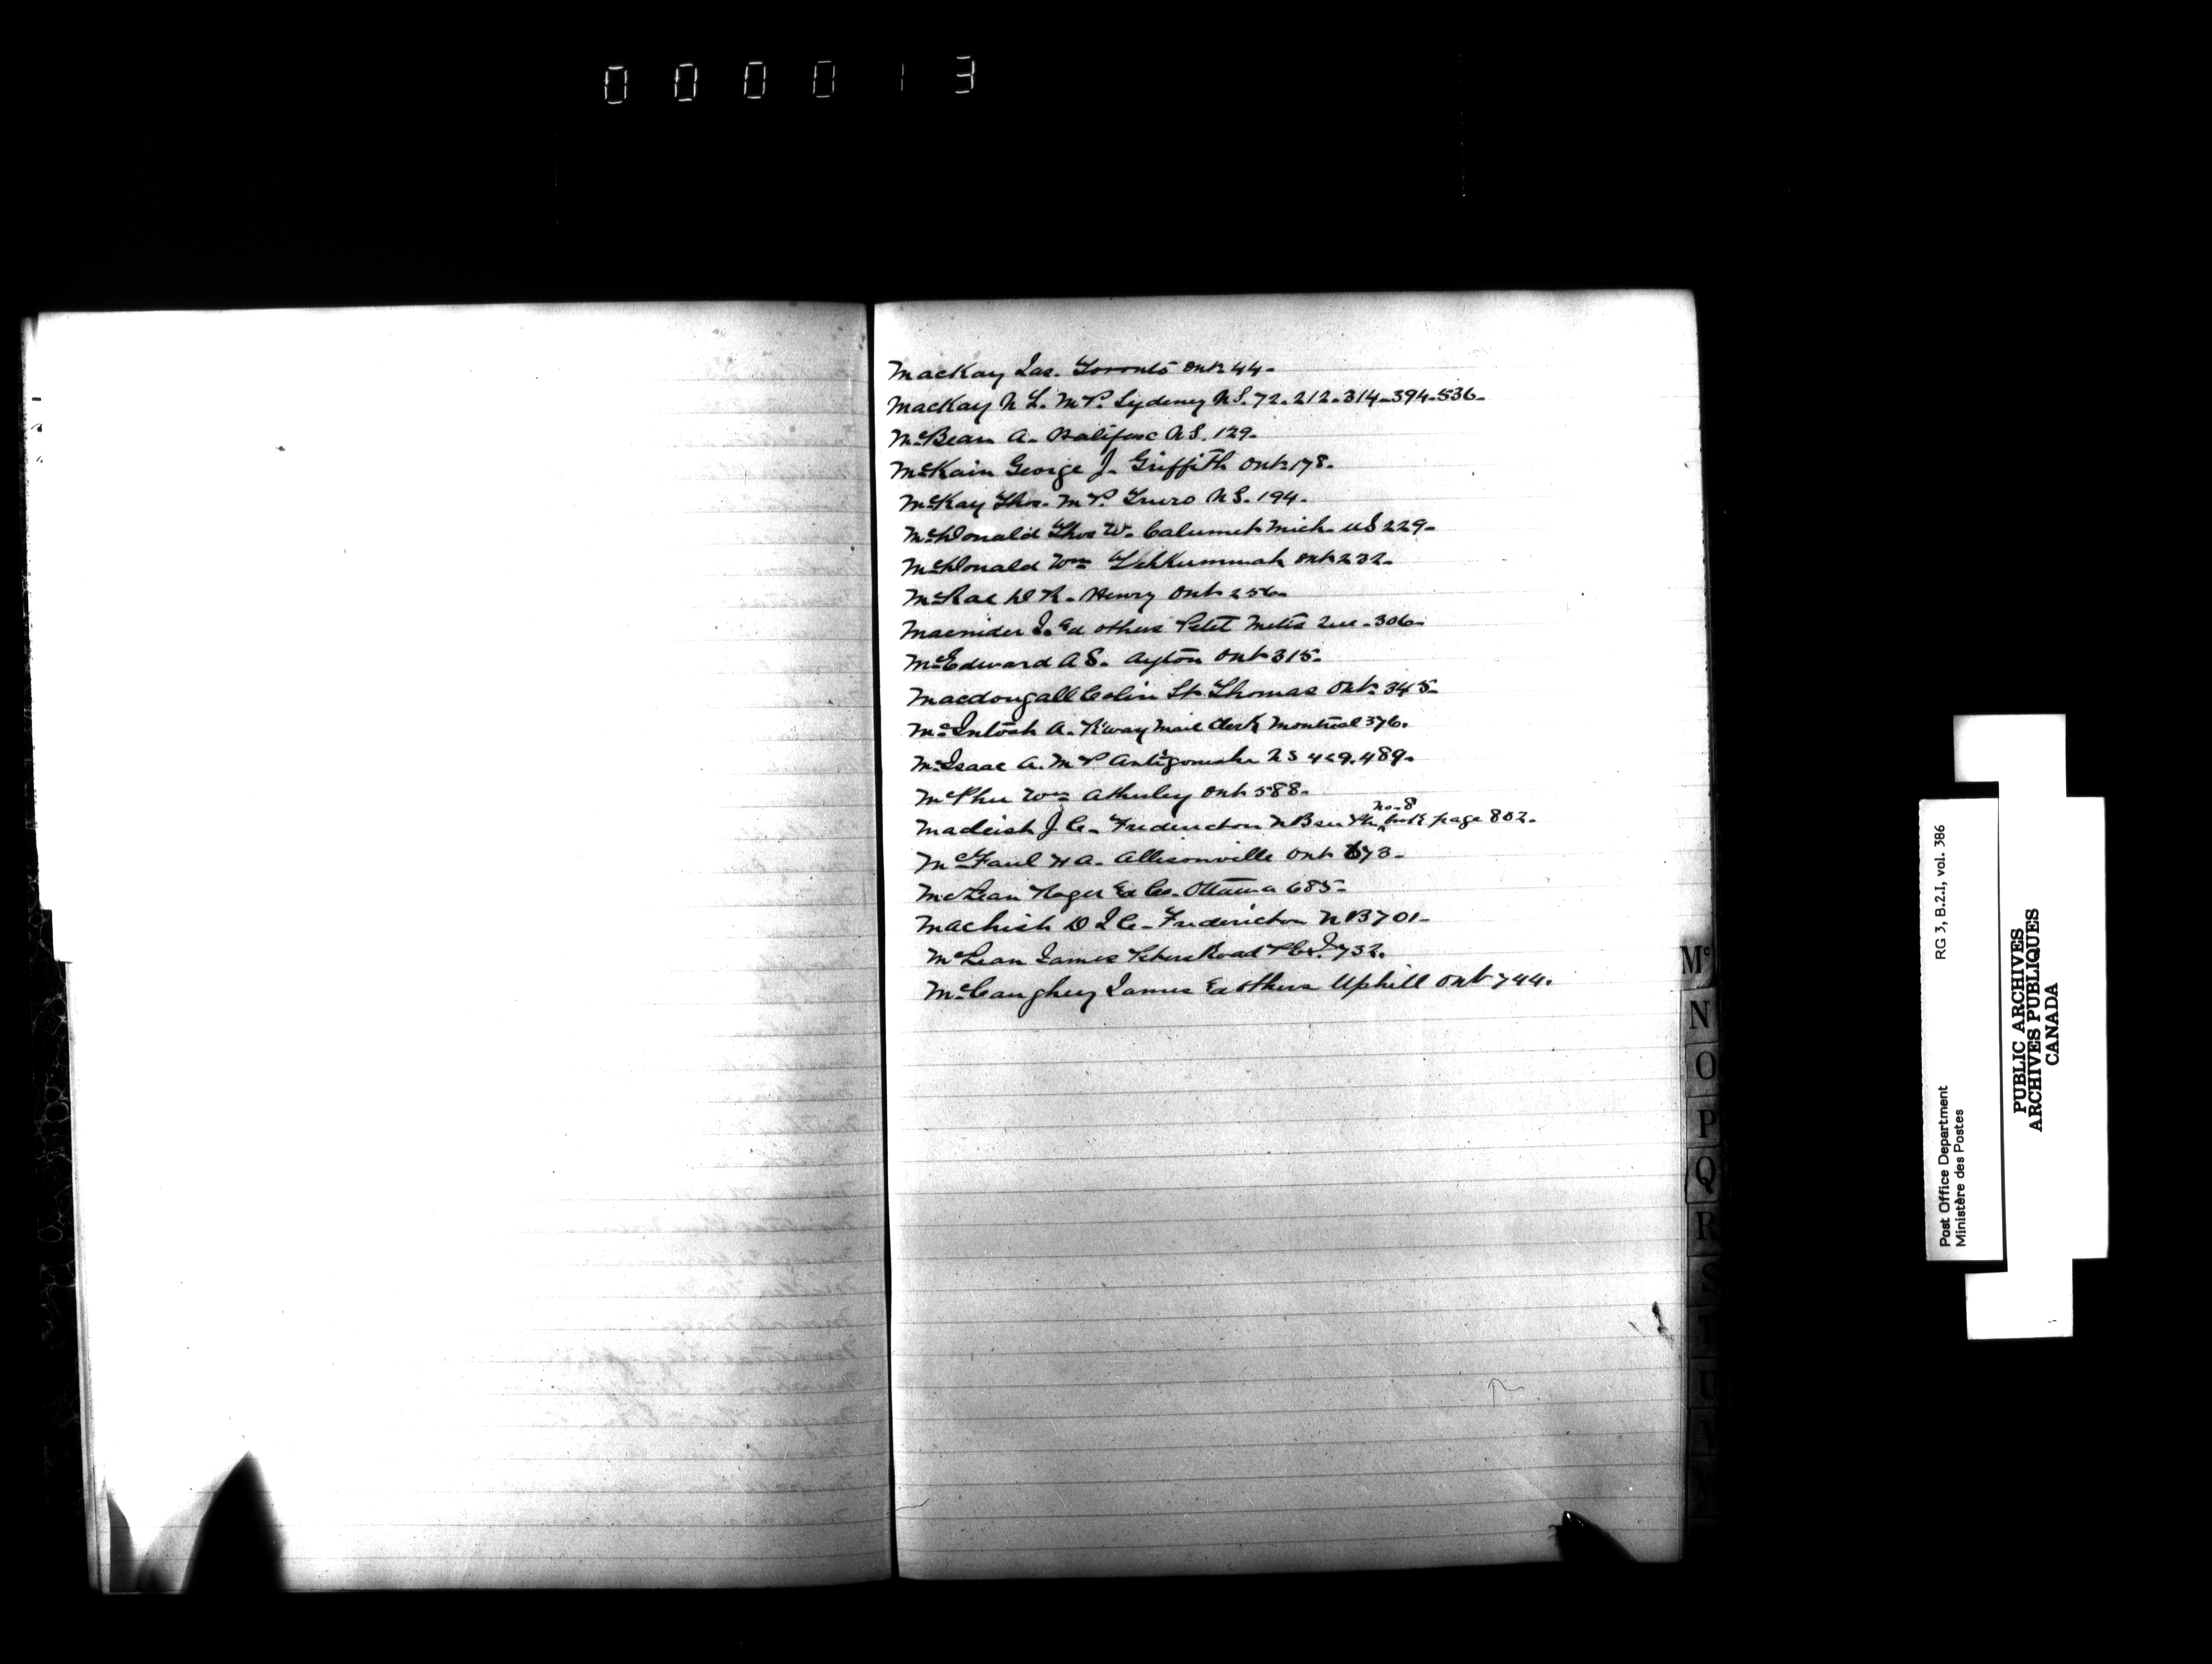 000013
MacKay Jas. Toronto Ont. 44-
MacKay N L. M P. Sydney N S. 72. 212. 314-394-536-
McBean A. Halifax N S. 129-
McKain George J. Griffith Ont. 178.
McKay Thos. M P. Truro N S. 194.
McDonald Thos W. Calumet Mich. U S 229-
McDonald Wm Tehkummah Ont 232-
McRae D R. Henry Ont 256-
Macnider J. & others Petit Metis Que. 306-
McEdward A S. Ayton Ont 315-
Macdougall Colin St. Thomas Ont. 345-
McIntosh A. R'way Mail Clerk Montreal 376.
McIsaac A. M P Antigonishe N S 489.
McPhee Wm Atherley Ont 588.
J C. Fredericton N B see no. 8 book page 802.
McFaul H A. Allisonville Ont 673-
McLean Roger & Co. Ottawa 685-
D I C. Fredericton N B 701-
McLean James Peters Road P E I. 732.
McCaughey James & others Uphill Ont 744.
Mc
N
O
P
Q
R
S
T
U
RG 3, B.2.I, vol. 386
Post Office Department
Ministère des Postes
PUBLIC ARCHIVES
ARCHIVES PUBLIQUES
CANADA